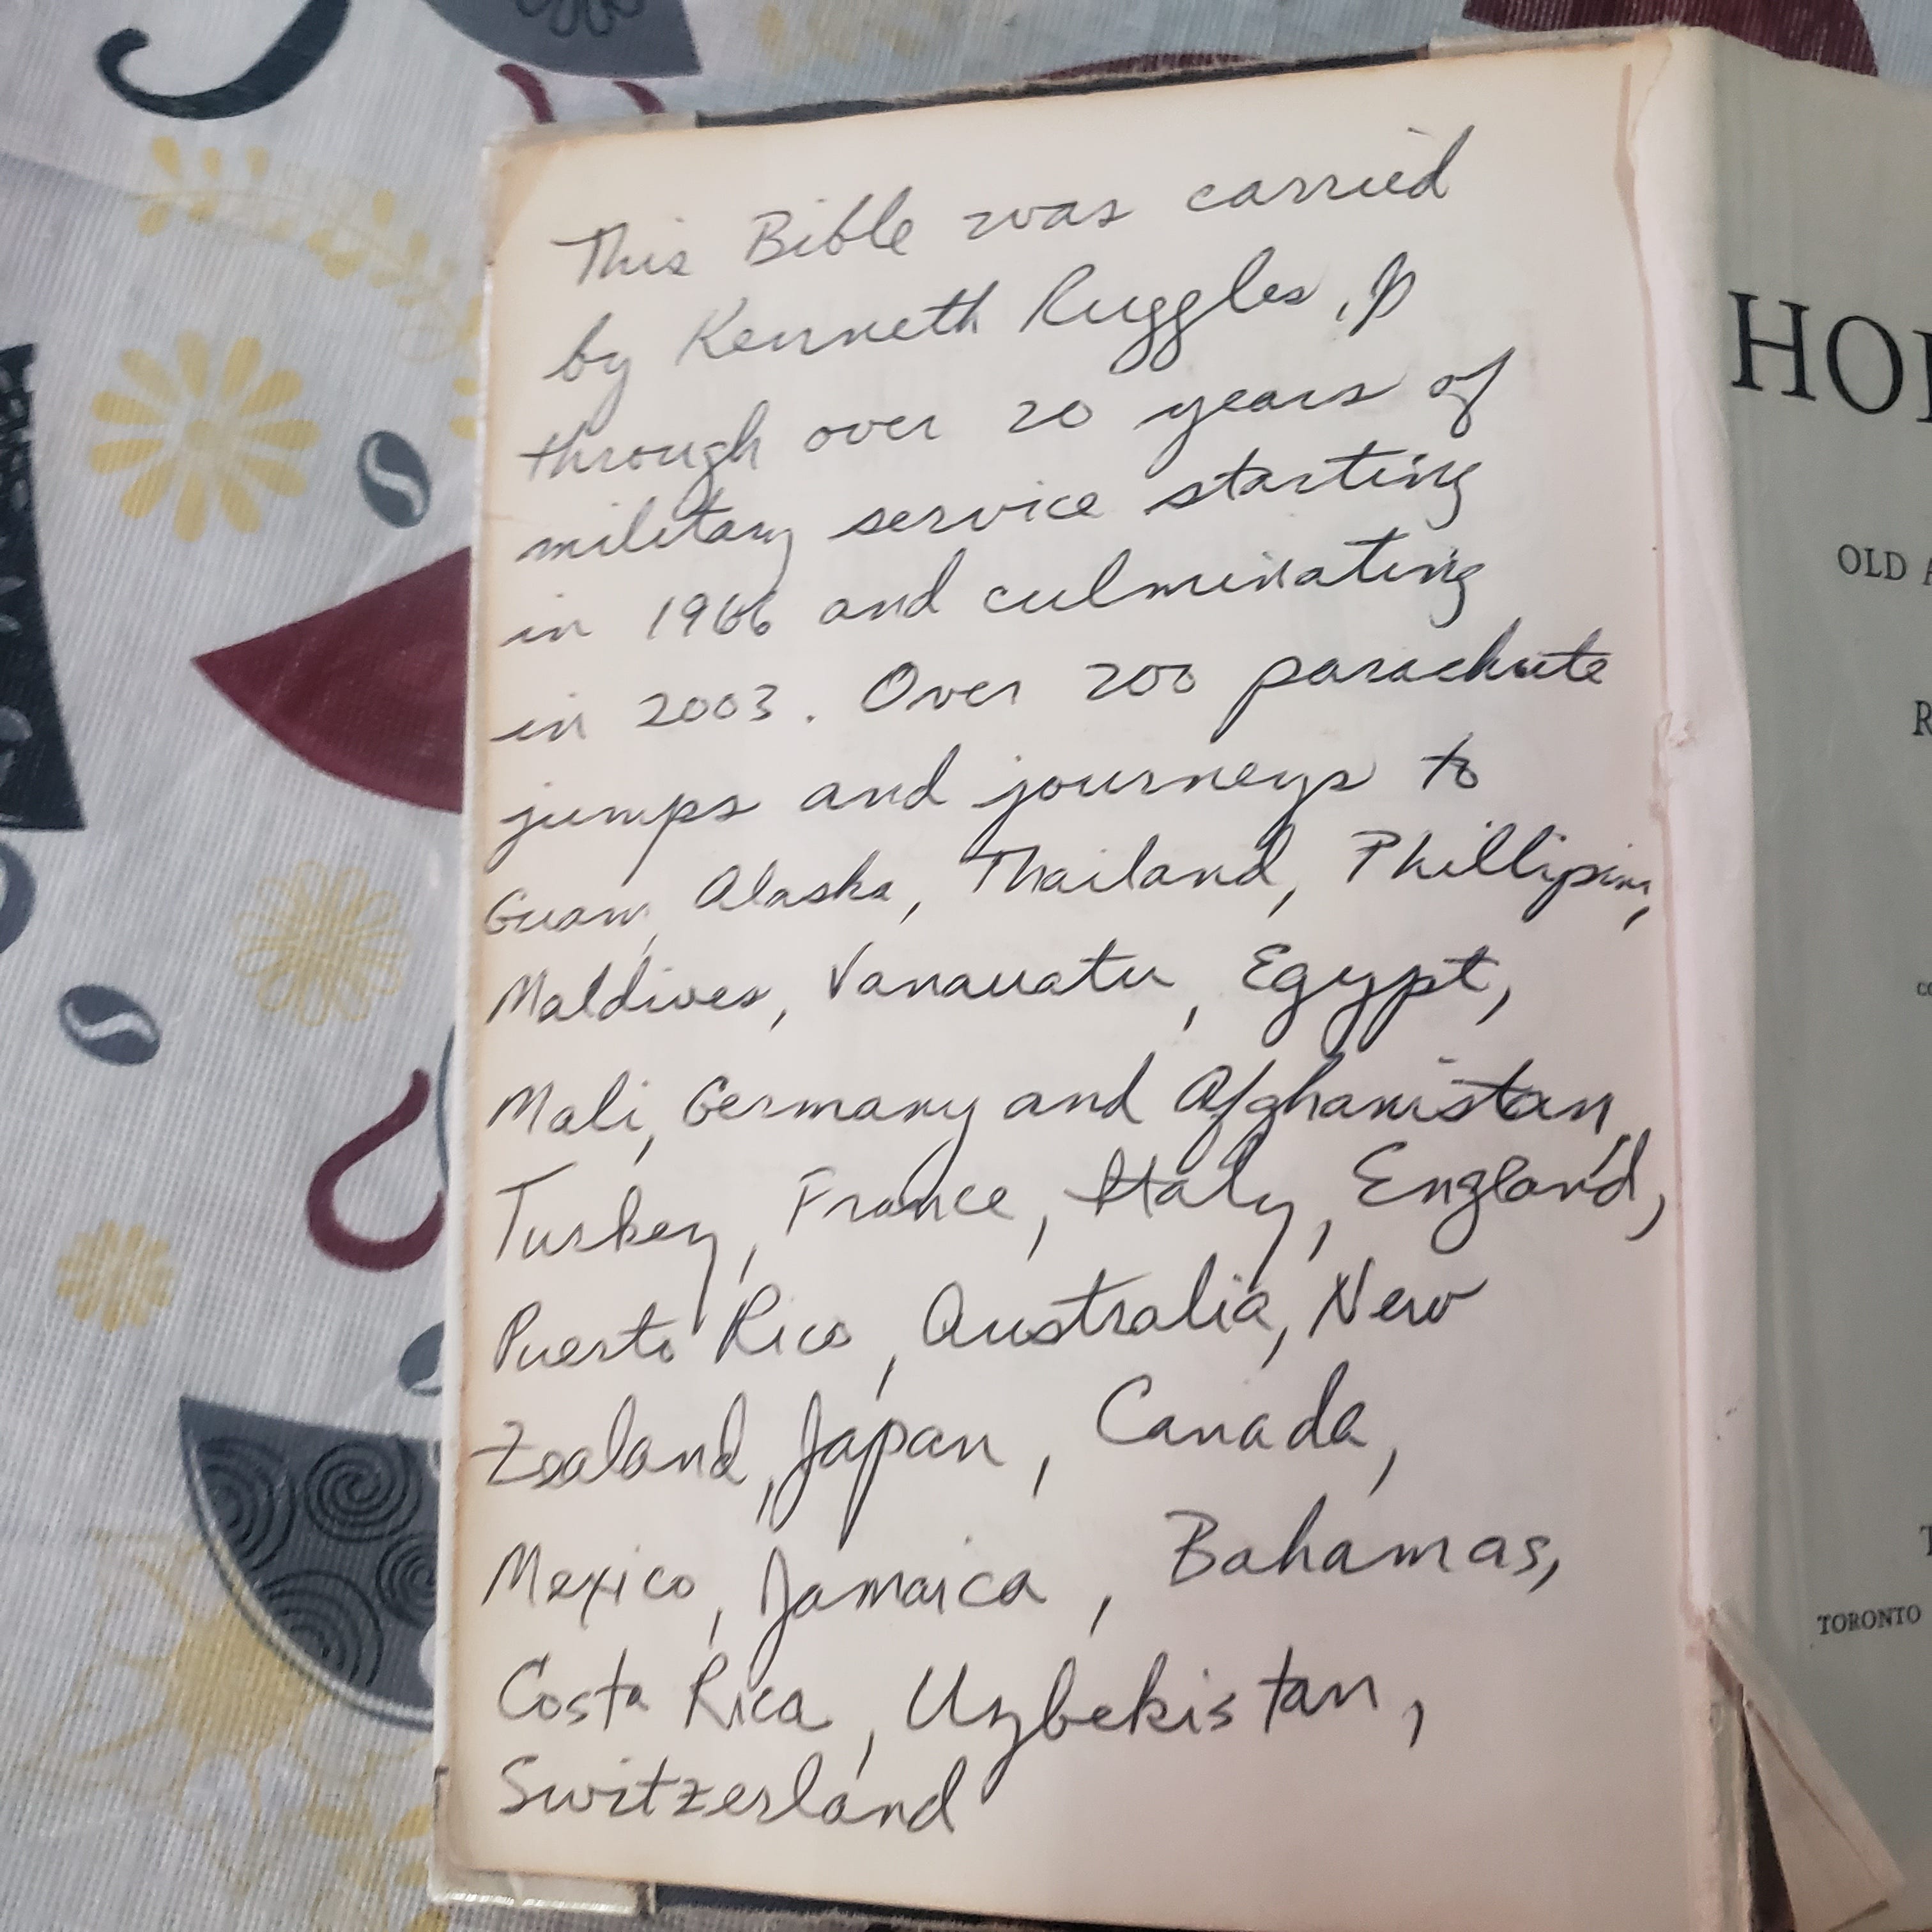 This Bible was carried
by Kenneth Ruggles,
through over 20 years of
military service starting
in 1966 and culminating
in 2003. Over 200 parachute
jumps and journeys to
Guam, Alaska, Thailand, Phillipins,
Maldives, Vanauatu, Egypt,
Mali, Germany and Afghanistan,
Turkey, France, Italy, England,
Puerto Rico, Australia, New
Zealand, Japan, Canada,
Mexico, Jamaica, Bahamas,
Costa Rica, Uzbekistan,
Switzerland
OLD
TORONTO